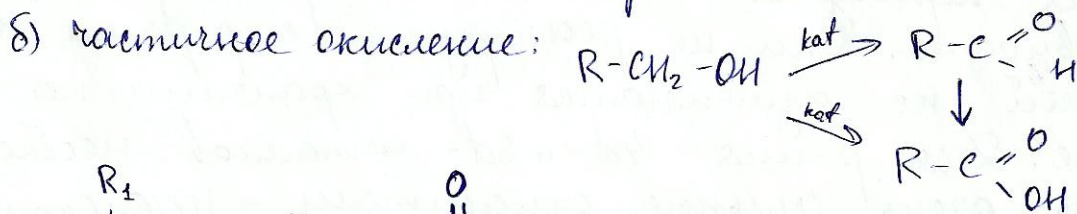 б) частичное окисление:
R-CH₂-OH kat R-C=O H
kat R-C=O OH
R₁ O